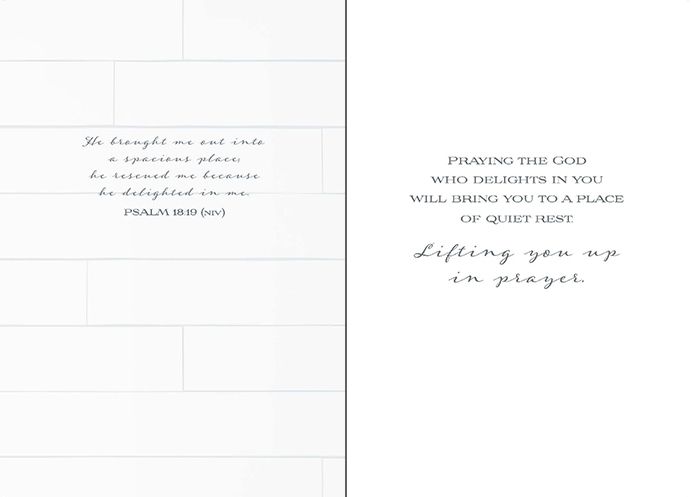 He brought me out into
a spacious place;
he rescued me because
he delighted in me.
PSALM 18:19 (NIV)
PRAYING THE GOD
WHO DELIGHTS IN YOU
WILL BRING YOU TO A PLACE
OF QUIET REST.
Lifting you up
in prayer.